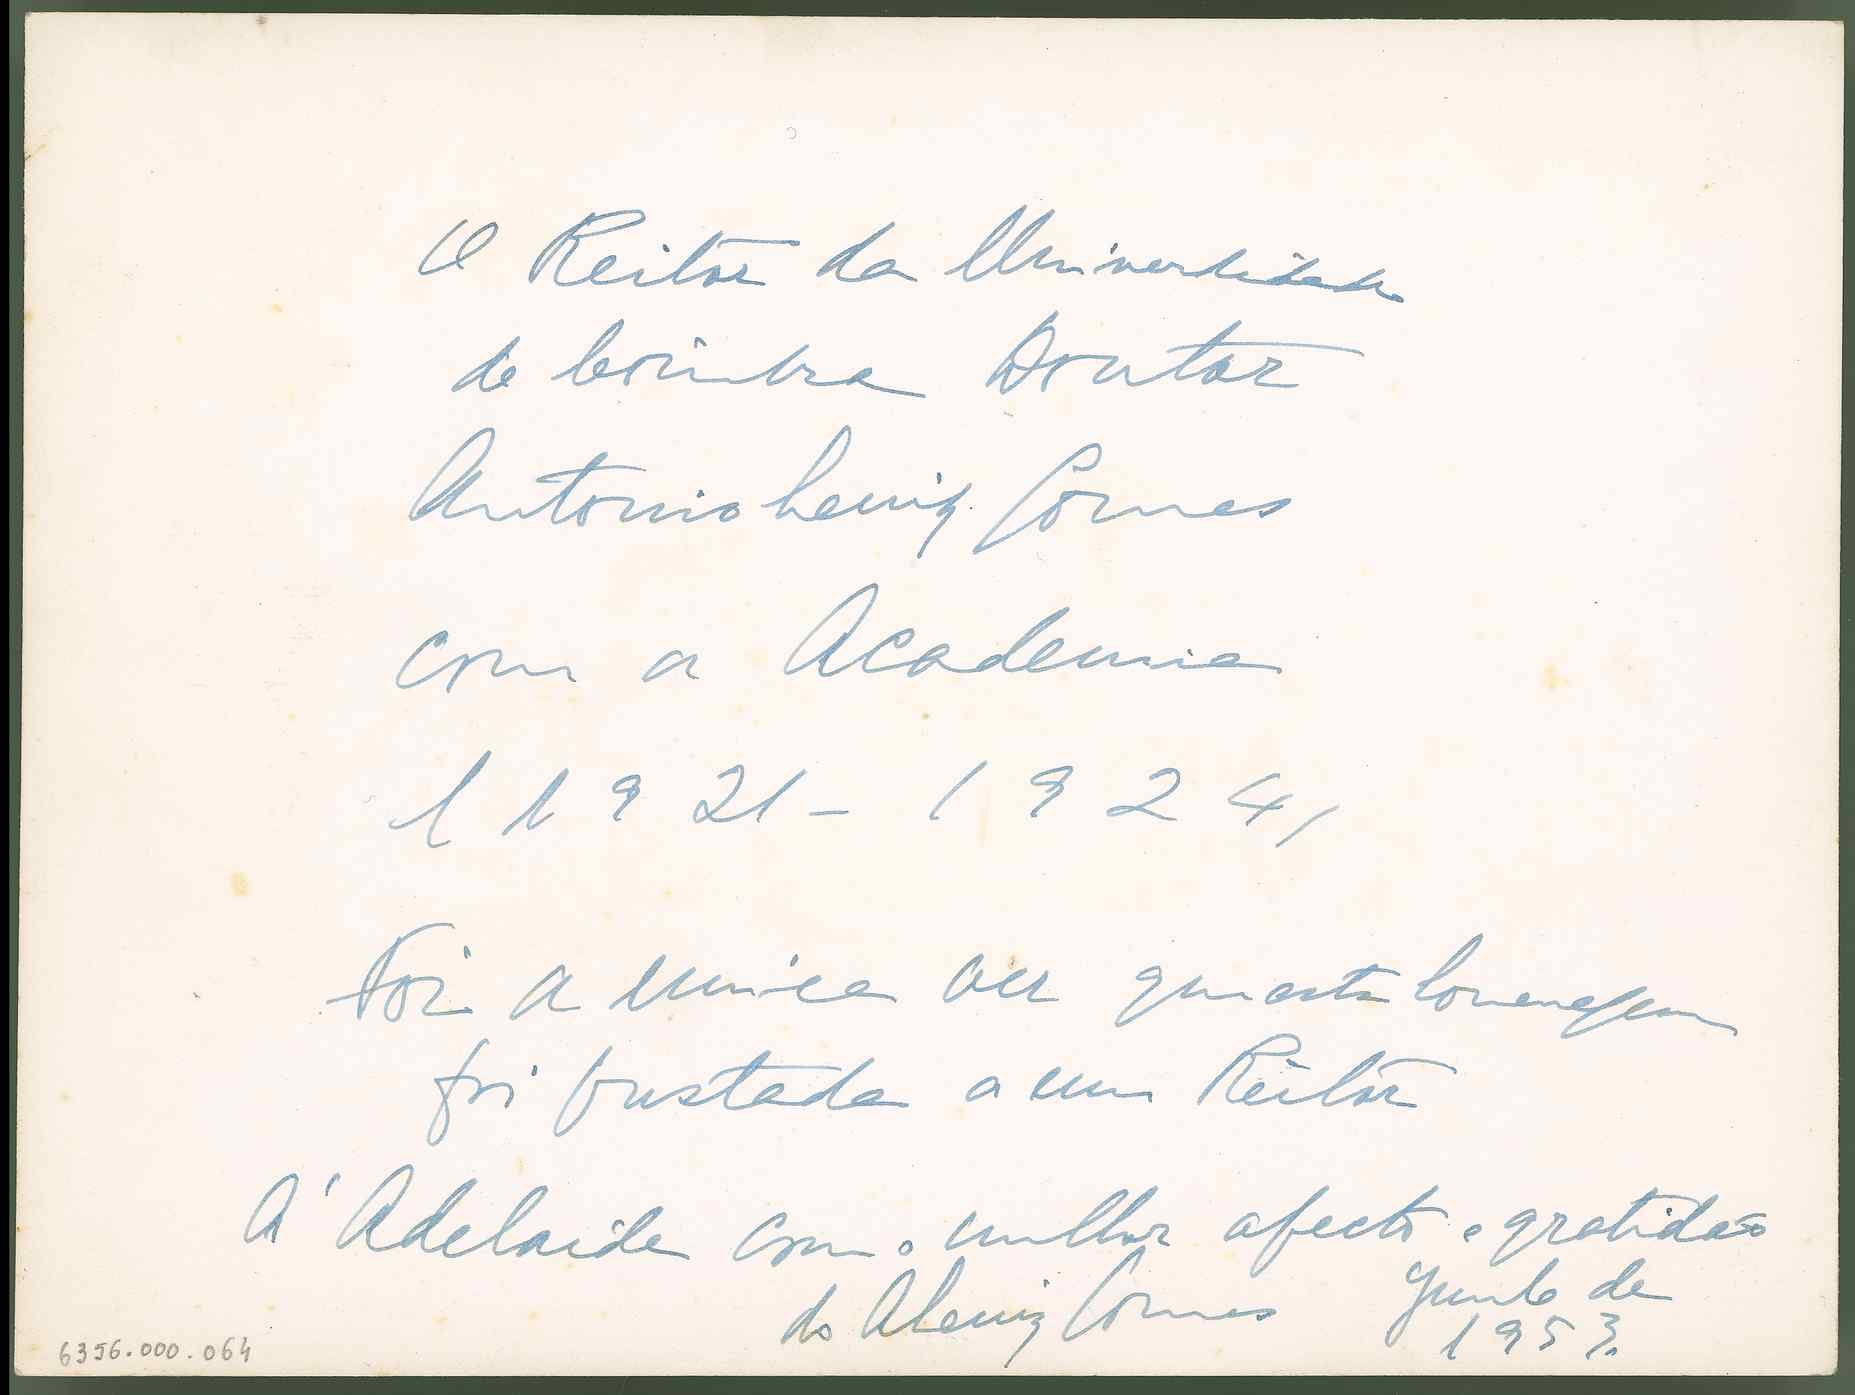 O Reitor da Universidade
de Coimbra Doutor
Antonio Luiz Gomes
com a Academia
(1921-1924)
Foi a unica vez que esta homenagem
foi prestada a um Reitor
A' Adelaide com o melhor afecto e gratidão
do A Luiz Gomes Junho de
1953.
6356.000.064